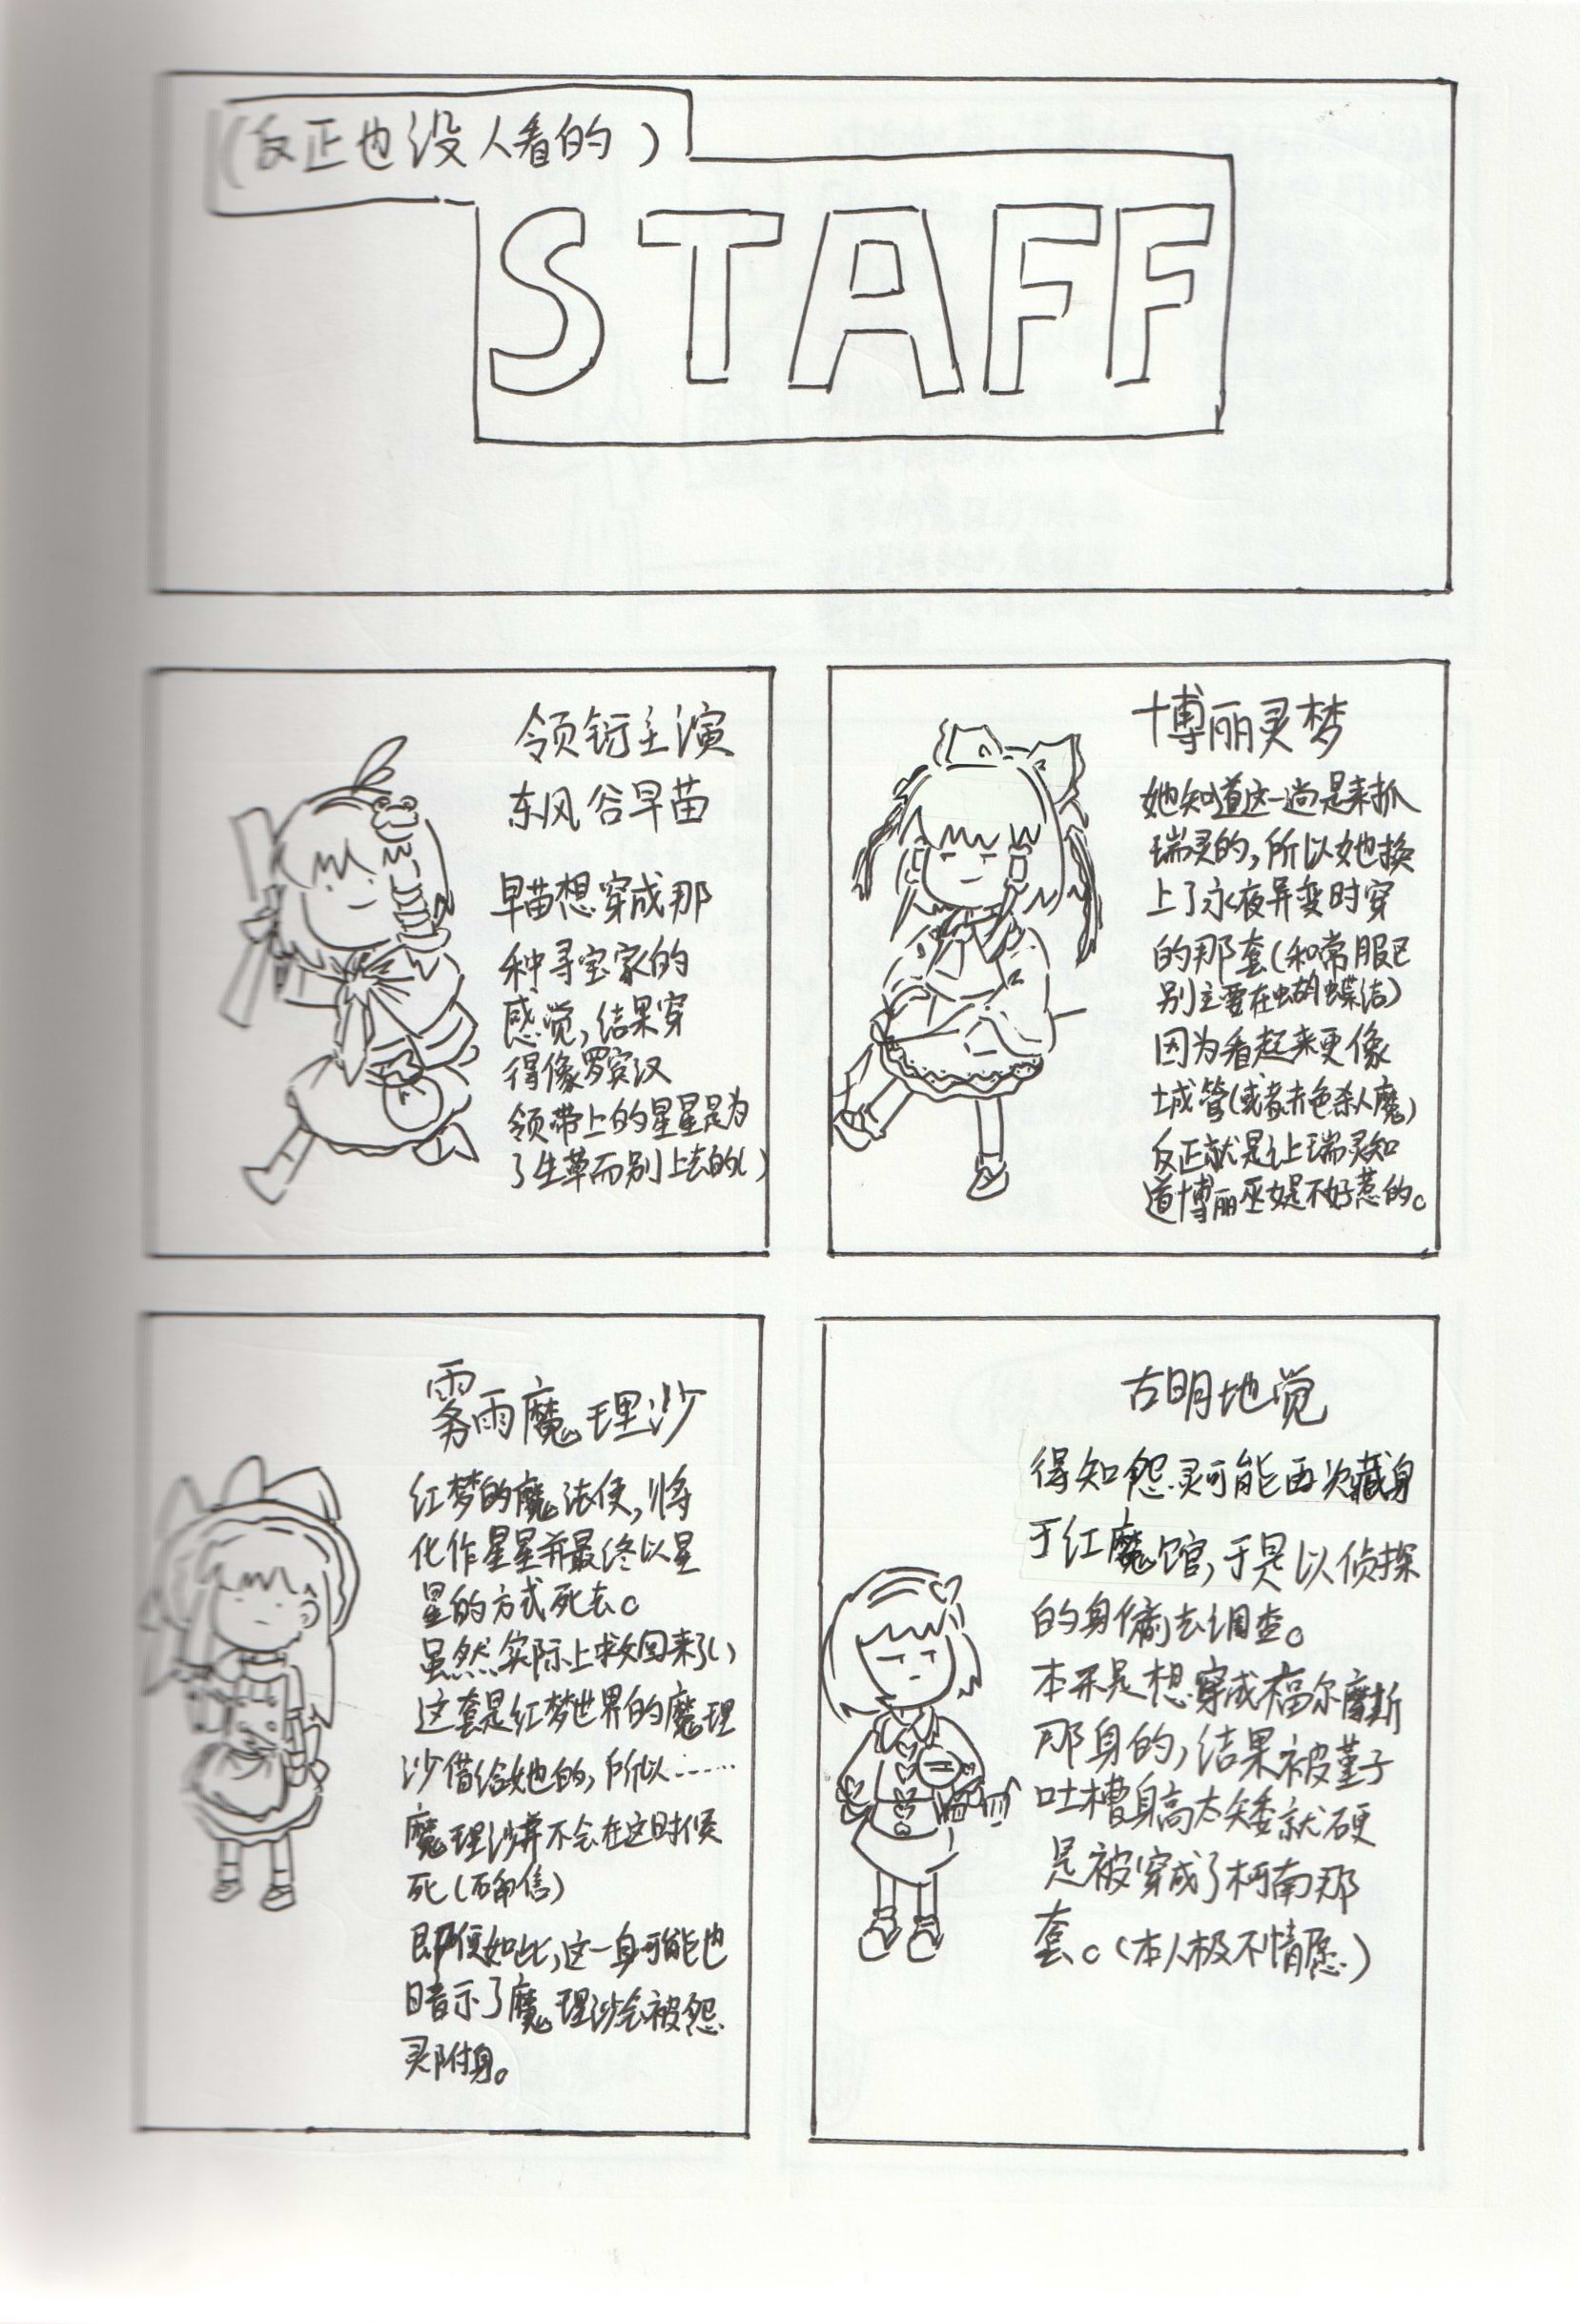 (反正也没人看的)
STAFF
领衔主演
东风谷早苗
早苗想穿成那
种寻宝家的
感觉,结果穿
得像罗宾汉
领带上的星星是为
了生草而别上去的()
博丽灵梦
她知道这一趟是来抓
瑞灵的,所以她换
上了永夜异变时穿
的那套(和常服区
别主要在蝴蝶结)
因为看起来更像
城管(或者赤色杀人魔)
反正就是让瑞灵知
道博丽巫女是不好惹的。
雾雨魔理沙
红梦的魔法使,将
化作星星并最终以星
星的方式死去。
虽然实际上救回来了()
这套是红梦世界的魔理
沙借给她的,所以……
魔理沙并不会在这时候
死(确信)
即便如此,这一身可能也
暗示了魔理沙会被怨
灵附身。
古明地觉
得知怨灵可能再次藏身
于红魔馆,于是以侦探
的身份去调查。
本来是想穿成福尔摩斯
那身的,结果被堇子
吐槽身高太矮就硬
是被穿成了柯南那
套。(本人极不情愿)